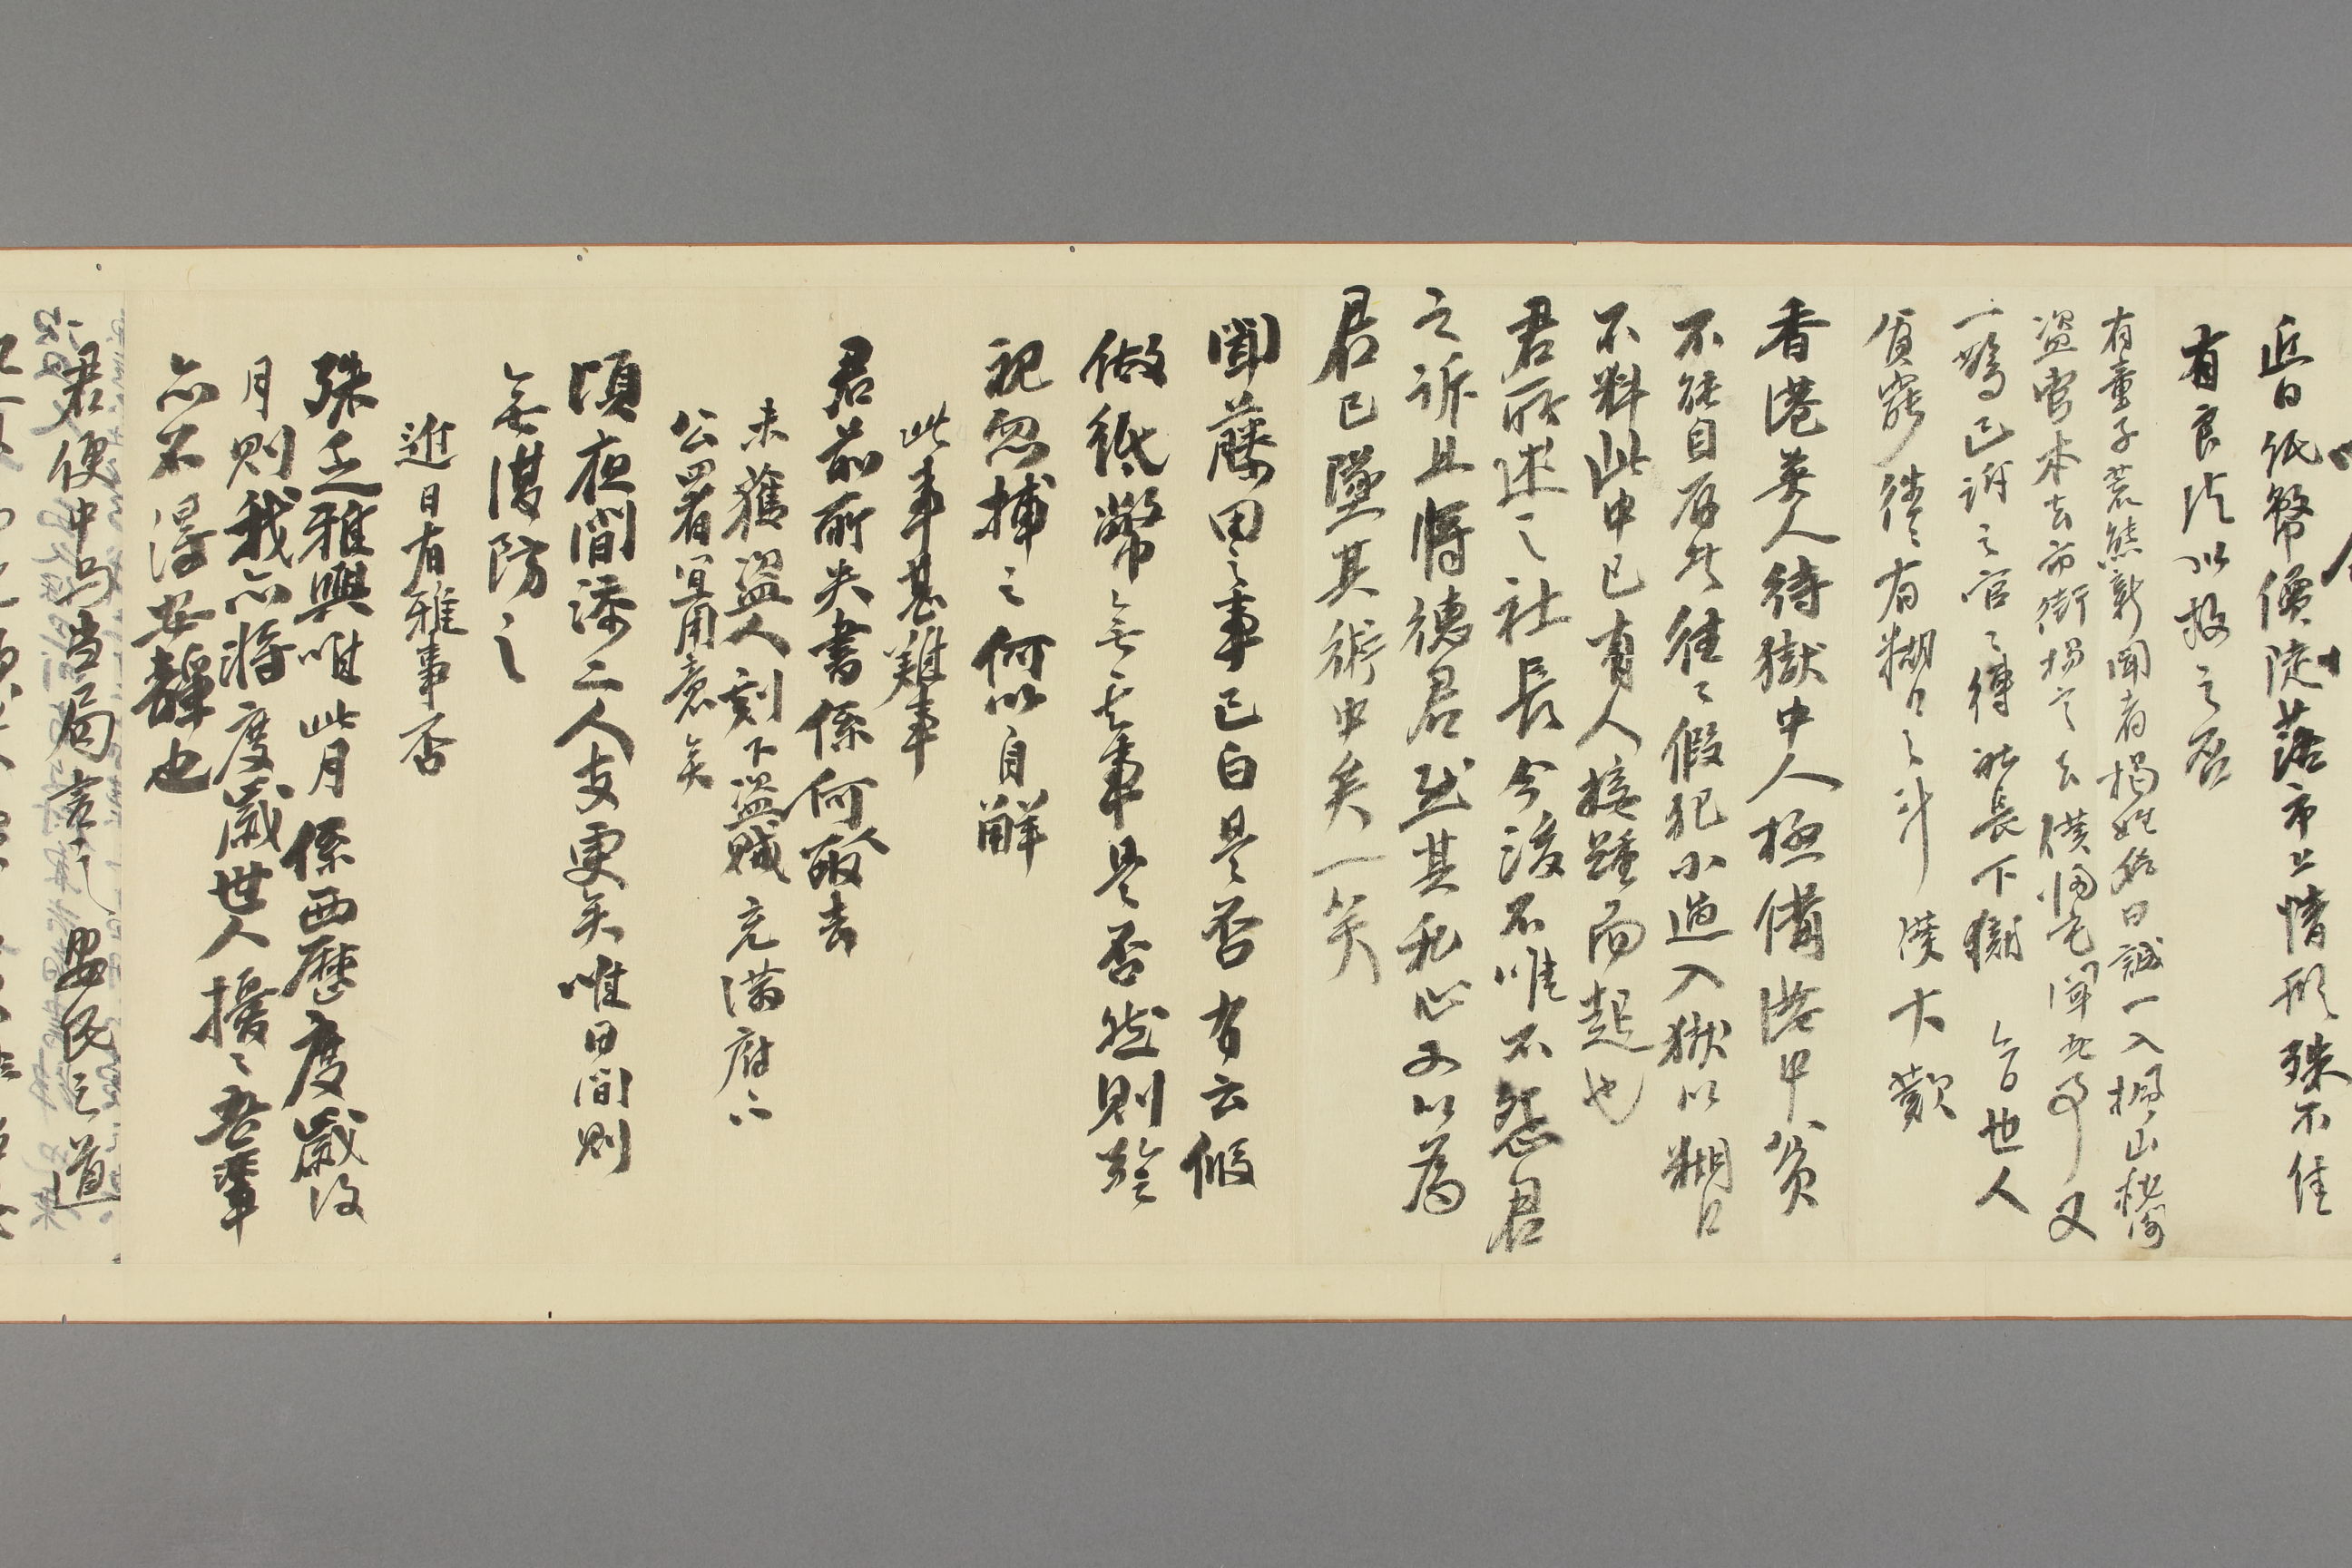 近日紙幣價陡落市上情形殊不佳
有良法以救之否
有童子荒熊新聞者揭姓名曰誠一入楓山秘府
盜官本去市街揚言之去僕归宅聞此事又
一驚已訴之官之縛社長下獄 今日世人
貧窮往往有糊口之计 僕大歎
香港英人待獄中人極備港中貧
不能自存者往々假犯小過入獄以糊口
不料此中已有人接踵而起也
君所述之社長今後不唯不怨君
之訴且將德君然其私心又以為
君已墜其術中矣一笑
聞藤田之事已白是否有云假
做紙幣無其事是否然則於
初忽捕之何以自解
此事甚難事
君前所失書係何散去
未獲盜人刻下盜賊充滿府下
公署宜用意矣
頃夜間添二人支更矣唯日間則
無謀防之
近日有雅事否
殊乏雅興唯此月係西歷度歲後
月則我亦將度歲世人擾々吾輩
亦不得安靜也
君便中与当局言之 安民之道